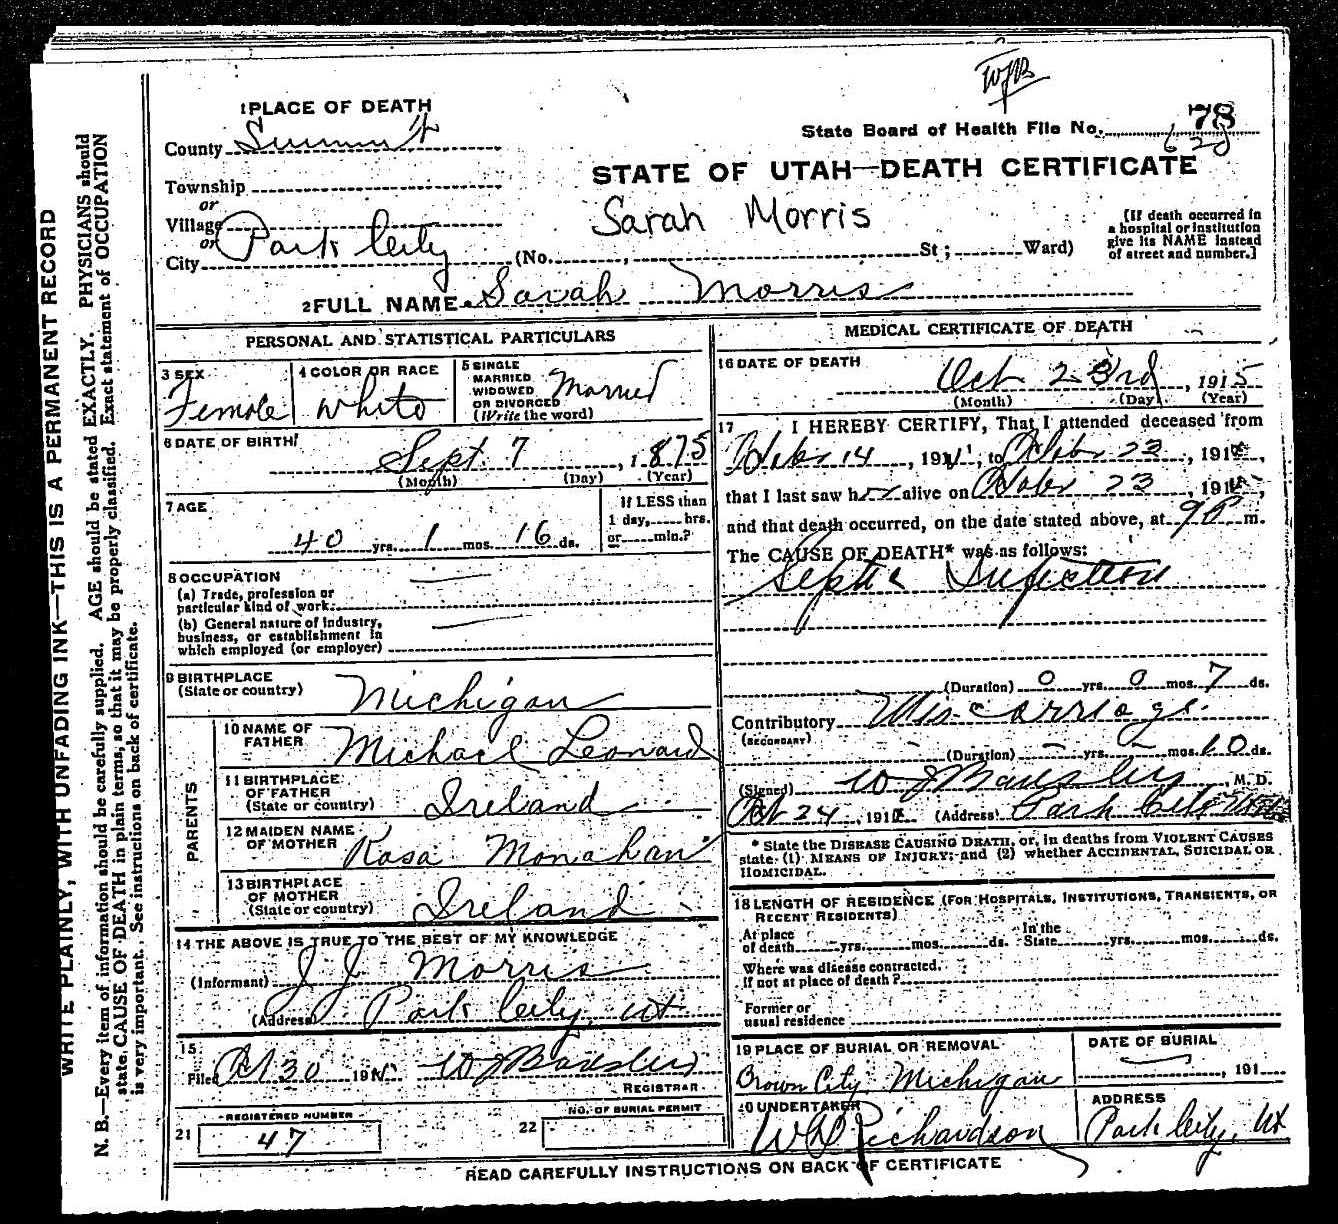 WJB
1 PLACE OF DEATH
County Summit
State Board of Health File No. 78
628
Township
STATE OF UTAH—DEATH CERTIFICATE
or
Village
Sarah Morris
or
City Park City (No. , St ; Ward)
[If death occurred in
a hospital or institution
give its NAME instead
of street and number.]
2 FULL NAME Sarah Morris
PERSONAL AND STATISTICAL PARTICULARS
3 SEX
Female
4 COLOR OR RACE
White
5 SINGLE
MARRIED
WIDOWED
OR DIVORCED
(Write the word)
Married
6 DATE OF BIRTH
Sept. 7, 1875
(Month) (Day) (Year)
7 AGE
40 yrs. 1 mos. 16 ds.
If LESS than
1 day, hrs.
or min.?
8 OCCUPATION
(a) Trade, profession or
particular kind of work
(b) General nature of industry,
business, or establishment in
which employed (or employer)
9 BIRTHPLACE
(State or country)
Michigan
PARENTS
10 NAME OF
FATHER
Michael Leonard
11 BIRTHPLACE
OF FATHER
(State or country)
Ireland
12 MAIDEN NAME
OF MOTHER
Rosa Monahan
13 BIRTHPLACE
OF MOTHER
(State or country)
Ireland
14 THE ABOVE IS TRUE TO THE BEST OF MY KNOWLEDGE
(Informant) J J Morris
(Address) Park City, Ut
15
Filed Oct 30 191
REGISTRAR
REGISTERED NUMBER
21 47
NO. OF BURIAL PERMIT
22
MEDICAL CERTIFICATE OF DEATH
16 DATE OF DEATH
Oct 23rd, 1915
(Month) (Day) (Year)
17 I HEREBY CERTIFY, That I attended deceased from
14, 191 , to 23, 191 ,
that I last saw her alive on 23, 191 ,
and that death occurred, on the date stated above, at 9 P m.
The CAUSE OF DEATH* was as follows:
Septic Infection
(Duration) 0 yrs. 0 mos. 7 ds.
Contributory Miscarriage.
(SECONDARY)
(Duration) – yrs. – mos. 10 ds.
(Signed) W J , M. D.
Oct 24, 191 (Address) Park City Utah
* State the DISEASE CAUSING DEATH, or, in deaths from VIOLENT CAUSES
state (1) MEANS OF INJURY; and (2) whether ACCIDENTAL, SUICIDAL OR
HOMICIDAL.
18 LENGTH OF RESIDENCE (FOR HOSPITALS, INSTITUTIONS, TRANSIENTS, OR
RECENT RESIDENTS)
At place
of death yrs. mos. ds.
In the
State yrs. mos. ds.
Where was disease contracted,
if not at place of death?
Former or
usual residence
19 PLACE OF BURIAL OR REMOVAL
Brown City Michigan
DATE OF BURIAL
, 191
20 UNDERTAKER
W D Richardson
ADDRESS
Park City, Ut
READ CAREFULLY INSTRUCTIONS ON BACK OF CERTIFICATE
WRITE PLAINLY, WITH UNFADING INK—THIS IS A PERMANENT RECORD
N. B.—Every item of information should be carefully supplied. AGE should be stated EXACTLY. PHYSICIANS should
state CAUSE OF DEATH in plain terms, so that it may be properly classified. Exact statement of OCCUPATION
is very important. See instructions on back of certificate.